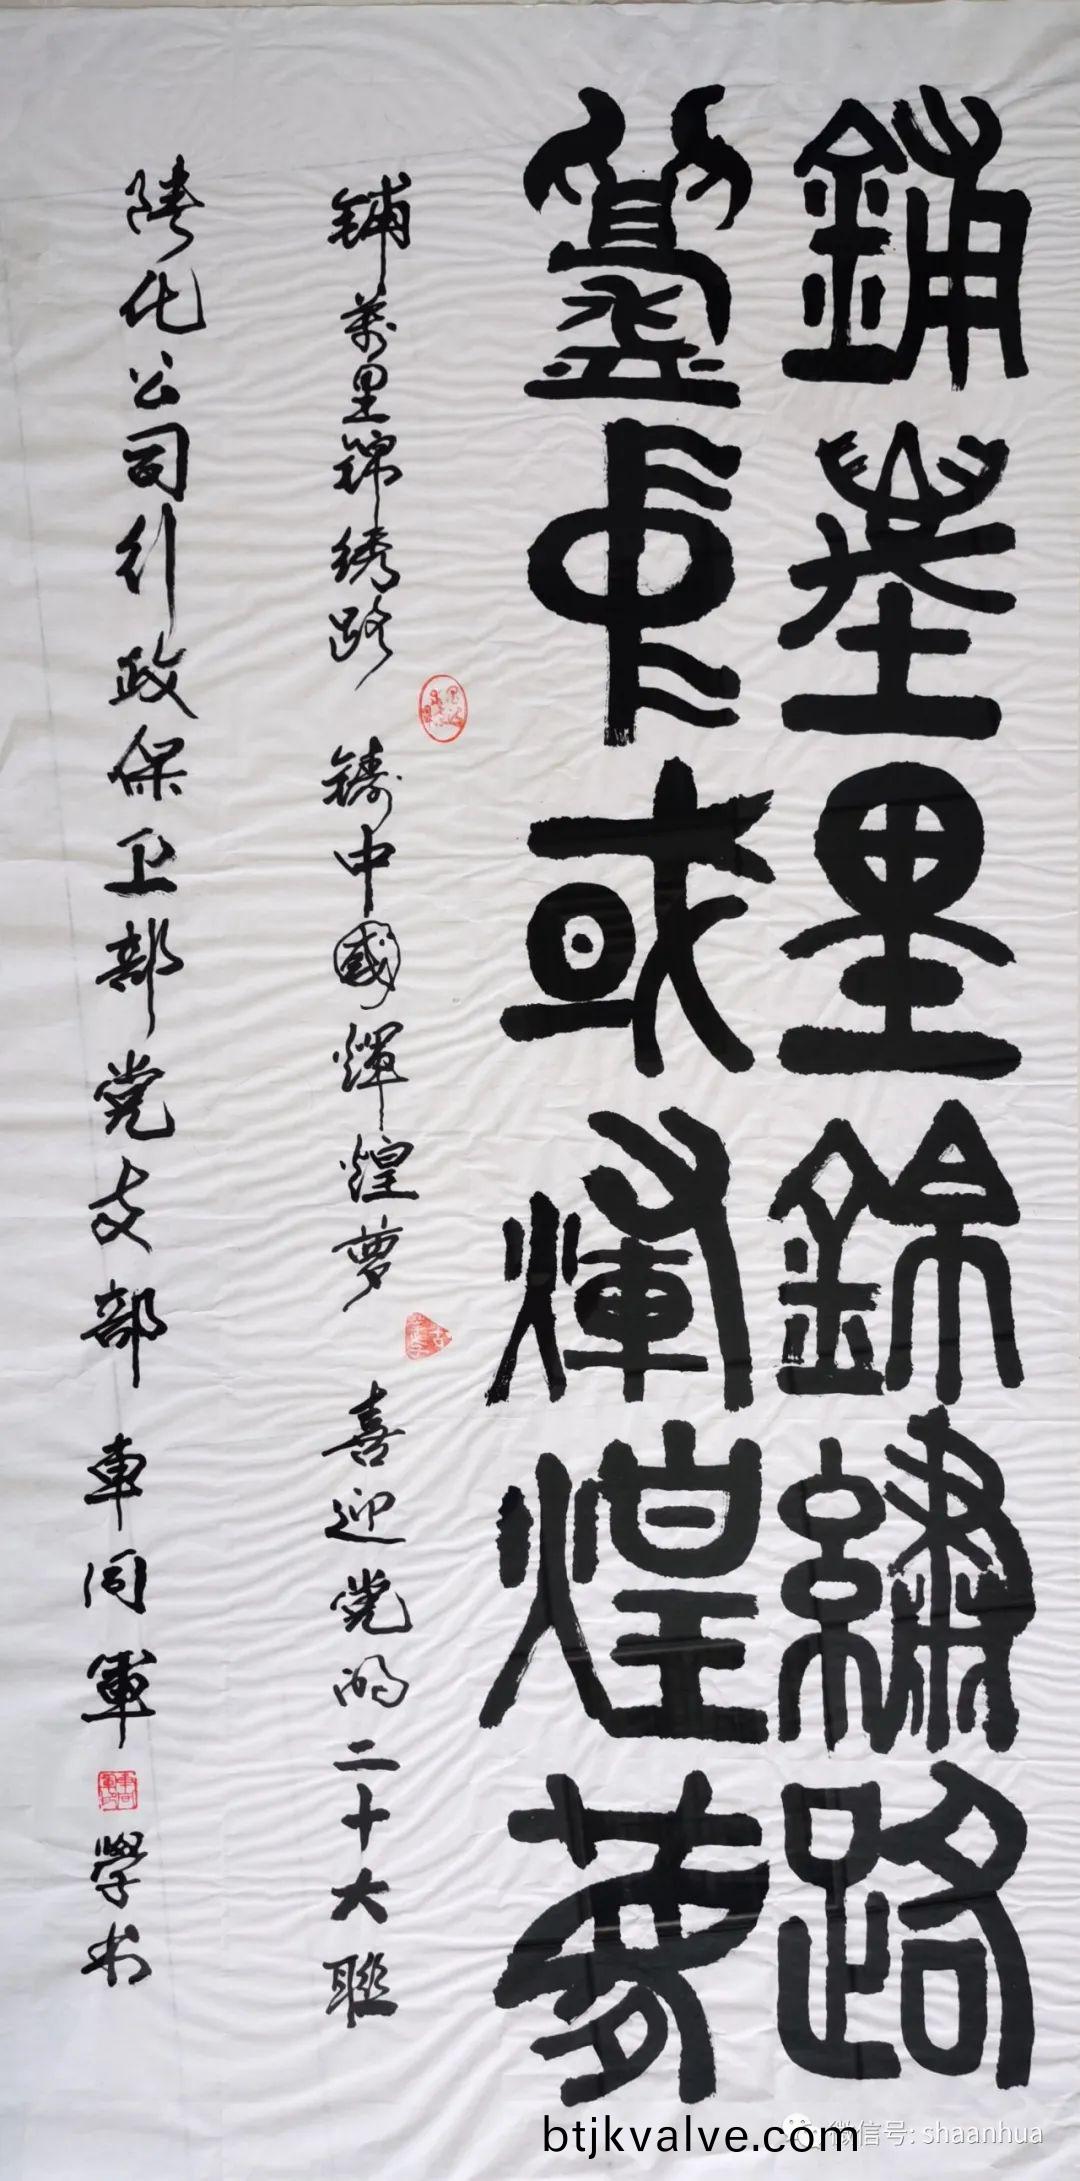 鋪萬里錦繡路
鑄中或輝煌夢
铺萬里錦绣路 鑄中國輝煌夢 喜迎党的二十大聯
陕化公司行政保卫部党支部 車同軍 學书
btjkvalve.com
微信号: shaanhua